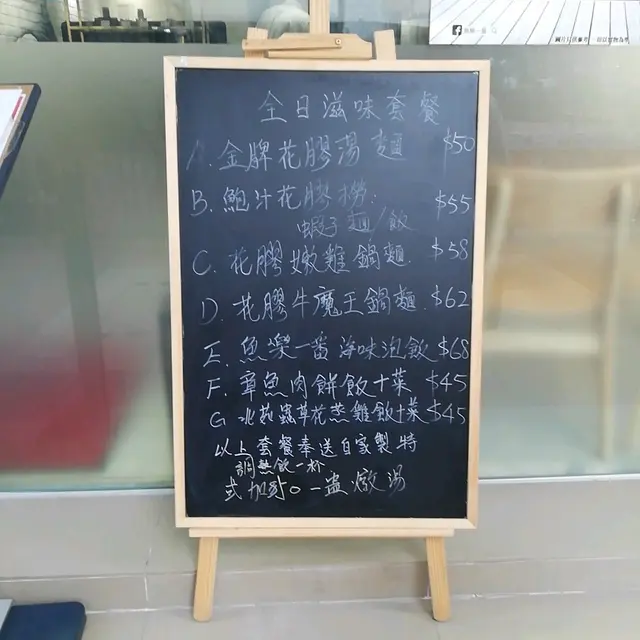 全日滋味套餐
A. 金牌花膠湯麵 $50
B. 鮑汁花膠撈
蝦子麵/飯 $55
C. 花膠嫩雞鍋麵 $58
D. 花膠牛魔王鍋麵 $62
E. 魚樂一番海味泡飯 $68
F. 章魚肉餅飯+菜 $45
G 北菇蟲草花蒸雞飯+菜 $45
以上套餐奉送自家製特
調熱飲一杯
或加 一盅燉湯